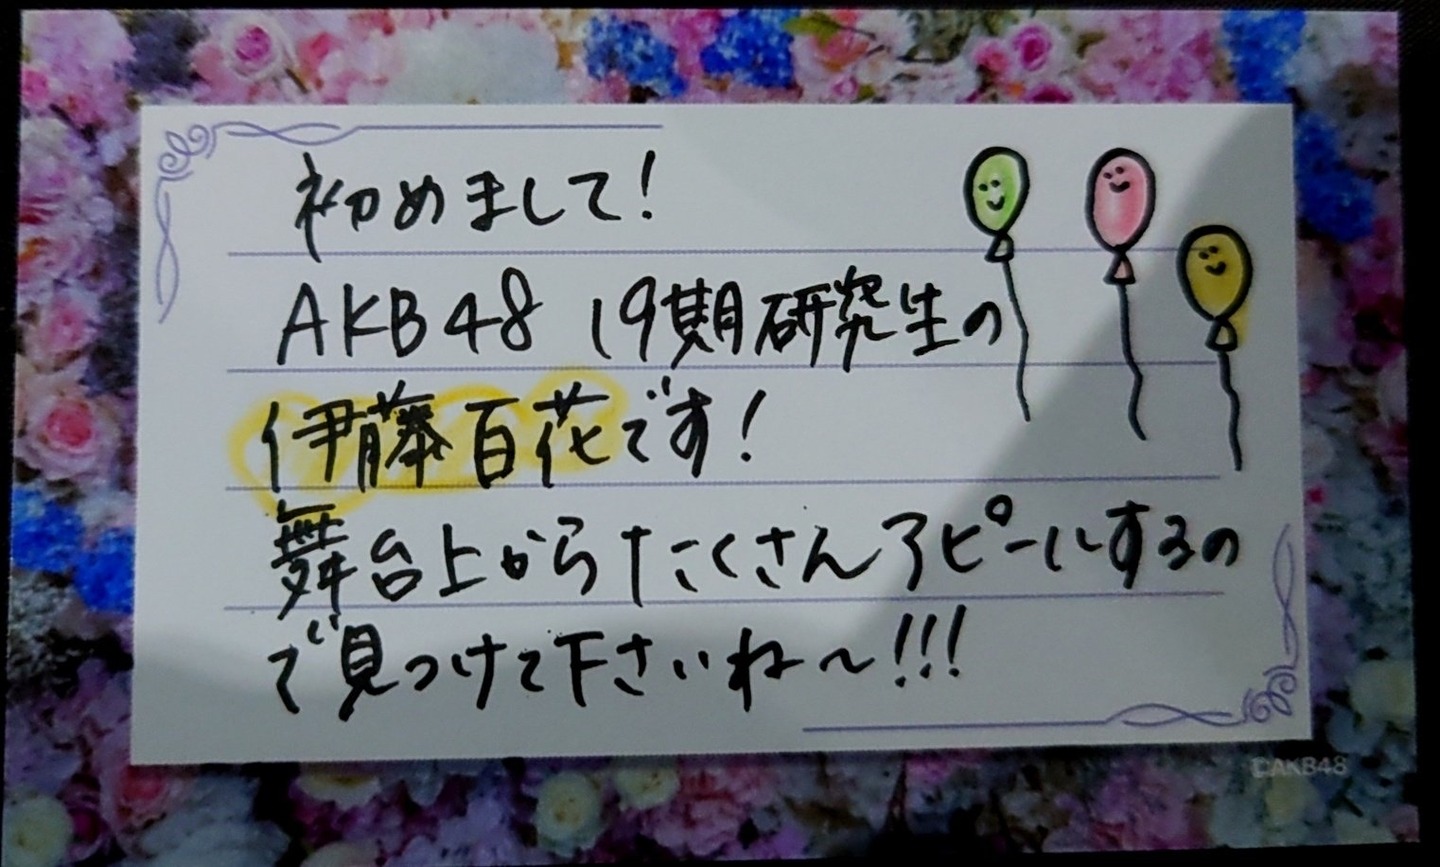 初めまして!
AKB48 19期研究生の
伊藤百花です!
舞台上からたくさんアピールするの
で見つけて下さいね〜!!!
©AKB48